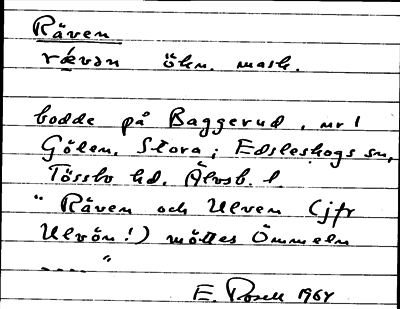 Räven
rǽvən ökn. mask.
bodde på Baggerud, nr 1
Gölen, Stora; Edsleskogs sn,
Tössbo hd. Älvsb. l.
" Räven och Ulven (jfr
Ulvön!) möttes Ömmeln
---- "
E. Rosell 1964